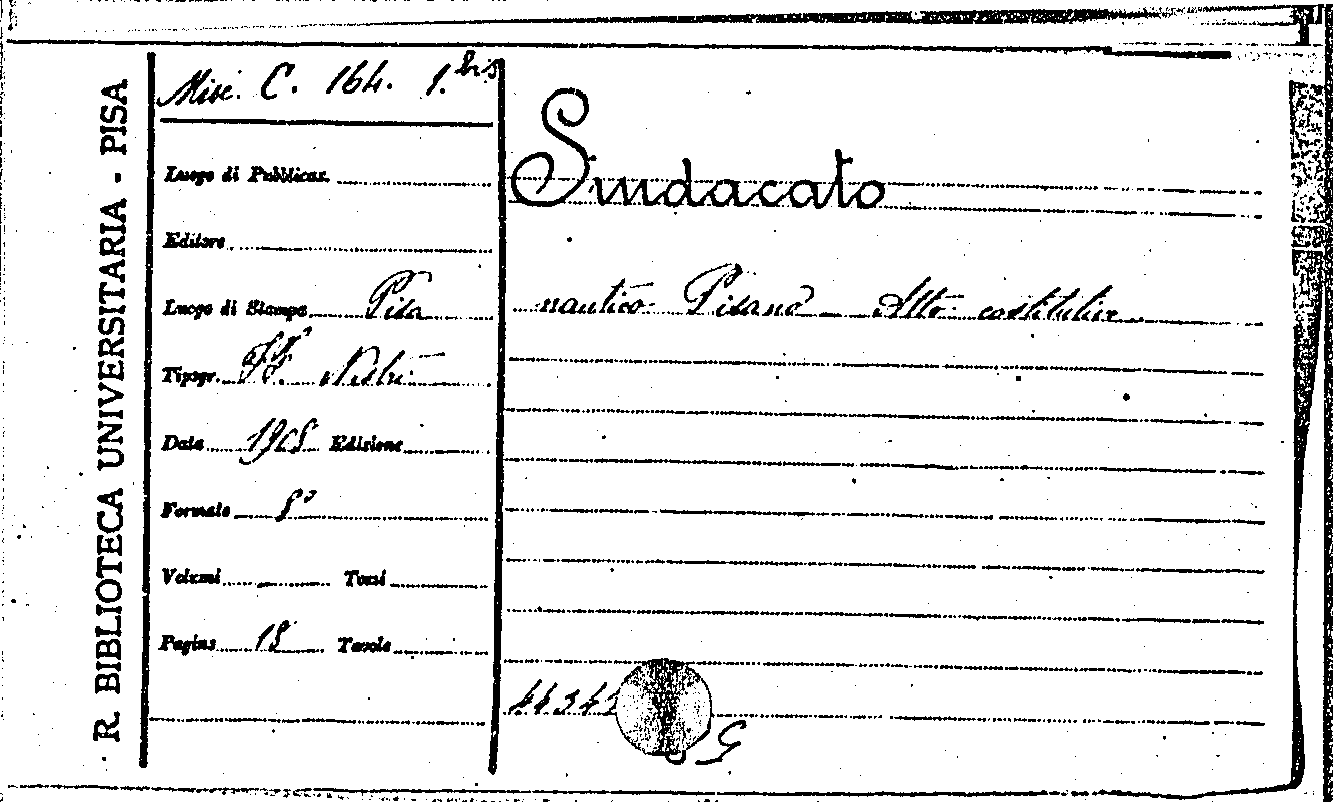 R. BIBLIOTECA UNIVERSITARIA - PISA
Misc. C. 164. 1.bis
Luogo di Pubblicaz.
Editore
Luogo di Stampa Pisa
Tipogr. FF. Nistri
Data 1908 Edizione
Formato 8°
Volumi Tomi
Pagine 18 Tavole
Sindacato
nautico Pisano Atto costitutivo